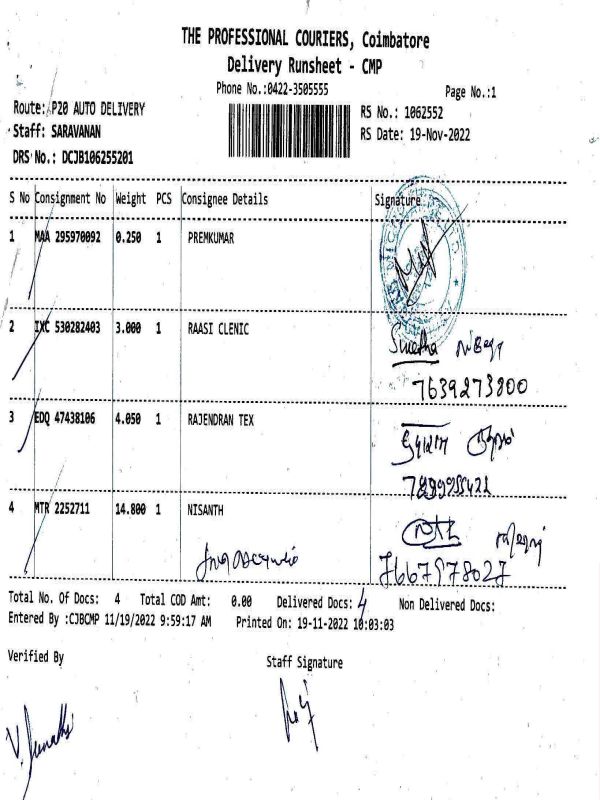 THE PROFESSIONAL COURIERS, Coimbatore
Delivery Runsheet - CMP
Phone No.:0422-3505555
Page No.:1
Route: P20 AUTO DELIVERY
RS No.: 1062552
Staff: SARAVANAN
RS Date: 19-Nov-2022
DRS No.: DCJB106255201
S No Consignment No Weight PCS Consignee Details Signature
1 MAA 295970092 0.250 1 PREMKUMAR
2 IXC 530282403 3.000 1 RAASI CLENIC
7639273800
3 EDQ 47438106 4.050 1 RAJENDRAN TEX
4 MTR 2252711 14.800 1 NISANTH
7667978027
Total No. Of Docs: 4 Total COD Amt: 0.00 Delivered Docs: 4 Non Delivered Docs:
Entered By :CJBCMP 11/19/2022 9:59:17 AM Printed On: 19-11-2022 10:03:03
Verified By Staff Signature